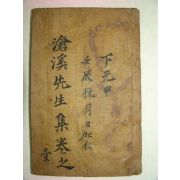 下元甲
壬辰槐月日加衣
滄溪先生集卷之
壹